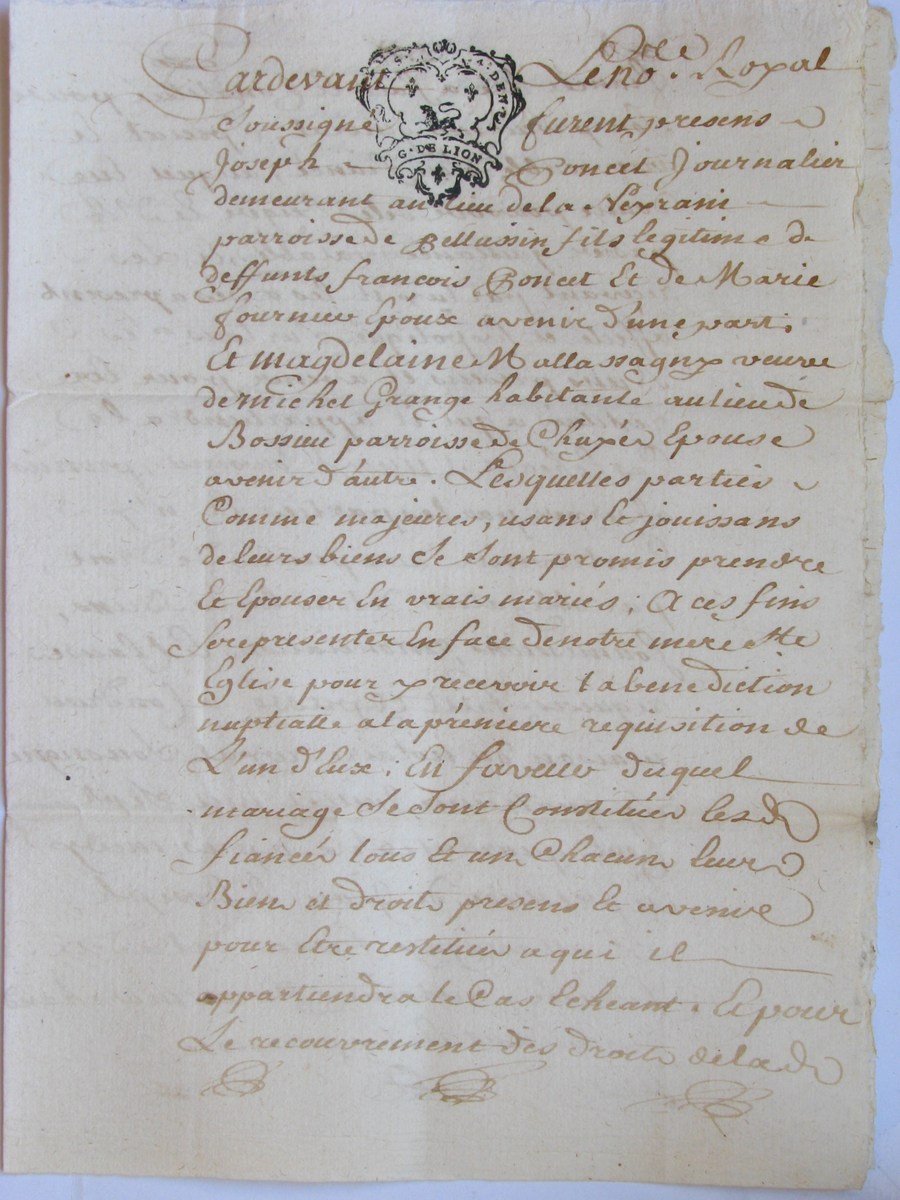 Pardevant Le no.re Royal
Soussigné furent presens
Joseph Poncet Journalier
demeurant au lieu de la Neyrani
parroisse de Pellussin fils legitime de
deffunts francois Poncet Et de Marie
fournier Epoux avenir d'une part.
Et magdelaine Mallassagny veuve
de michel Grange habitante au lieu de
Bossieu parroisse de Chuyér Epouse
avenir d'autre. Lesquelles parties
Comme majeures, usans Et jouissans
de leurs biens Se Sont promis prendre
Et Epouser En vrais mariés; A ces fins
Se representer En face de notre mere Ste
Eglise pour y recevoir la benediction
nuptialle a la prémiere requisition de
L'un d'Eux; En faveur duquel
mariage Se Sont Constitués les d
fiancés tous Et un Chacun leurs
Biens et droits presens Et avenir
pour Etre restitués a qui il
appartiendra le Cas Echéant. Et pour
Le recouvrement des droits de la d
G. DE LION